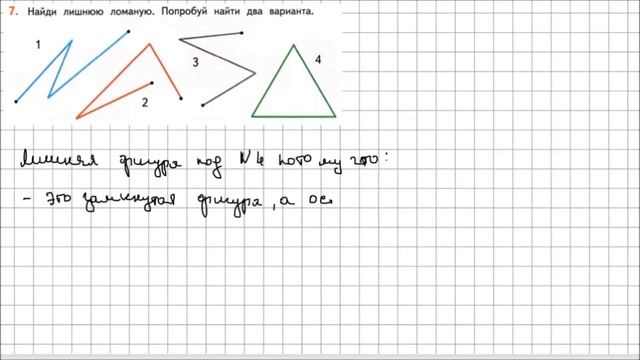 7. Найди лишнюю ломаную. Попробуй найти два варианта.
1
2
3
4
Лишняя фигура под №4 потому что:
- это замкнутая фигура, а ос